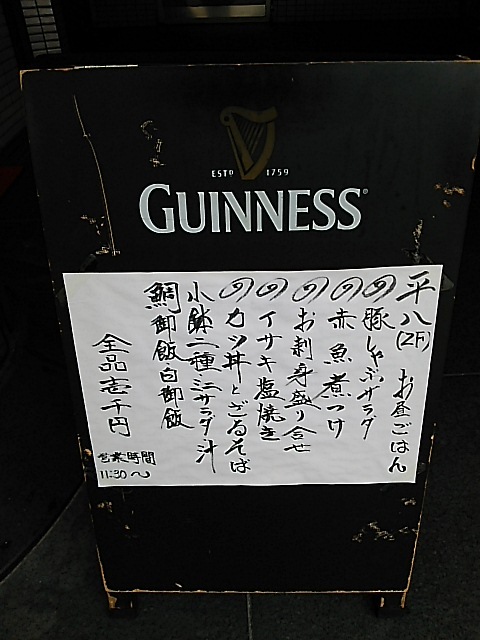 ESTD 1759
GUINNESS
平八(2F) お昼ごはん
の豚しゃぶサラダ
の赤魚煮つけ
のお刺身盛り合せ
のイサキ塩焼き
のカツ丼とざるそば
小鉢二種ミニサラダ汁
鯛御飯白御飯
全品壱千円
営業時間
11:30〜